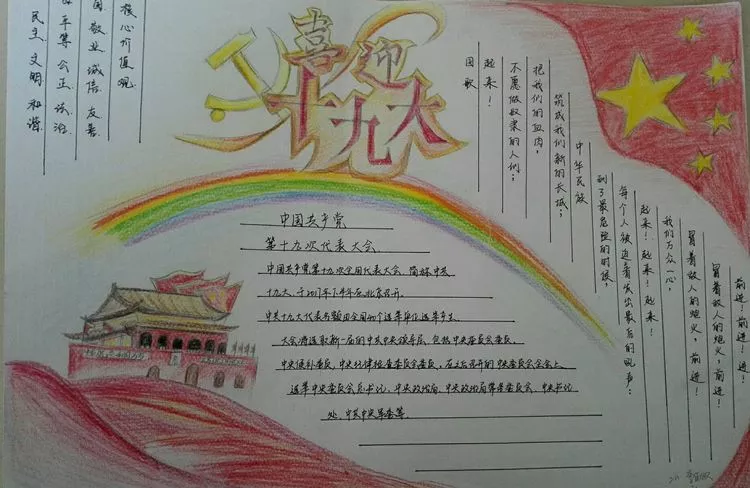 喜迎
十九大
核心价值观
国 敬业 诚信 友善
平等 公正 法治
民主 文明 和谐
中国共产党
第十九次代表大会
中国共产党第十九次全国代表大会,简称中共
十九大,于2017年下半年在北京召开.
中共十九大代表名额由全国40个选举单位选举产生.
大会将选取新一届的中共中央领导层,包括中央委员会委员,
中央候补委员,中央纪律检查委员会委员,在之后召开的中央委员会全会上
选举中央委员会总书记、中央政治局、中央政治局常务委员会、中央书记
处、中共中央军委等.
国歌
起来!
不愿做奴隶的人们;
把我们的血肉,
筑成我们新的长城;
中华民族
到了最危险的时候,
每个人被迫着发出最后的吼声:
起来!起来!起来!
我们万众一心,
冒着敌人的炮火,前进!
冒着敌人的炮火,前进!
前进!前进!进!